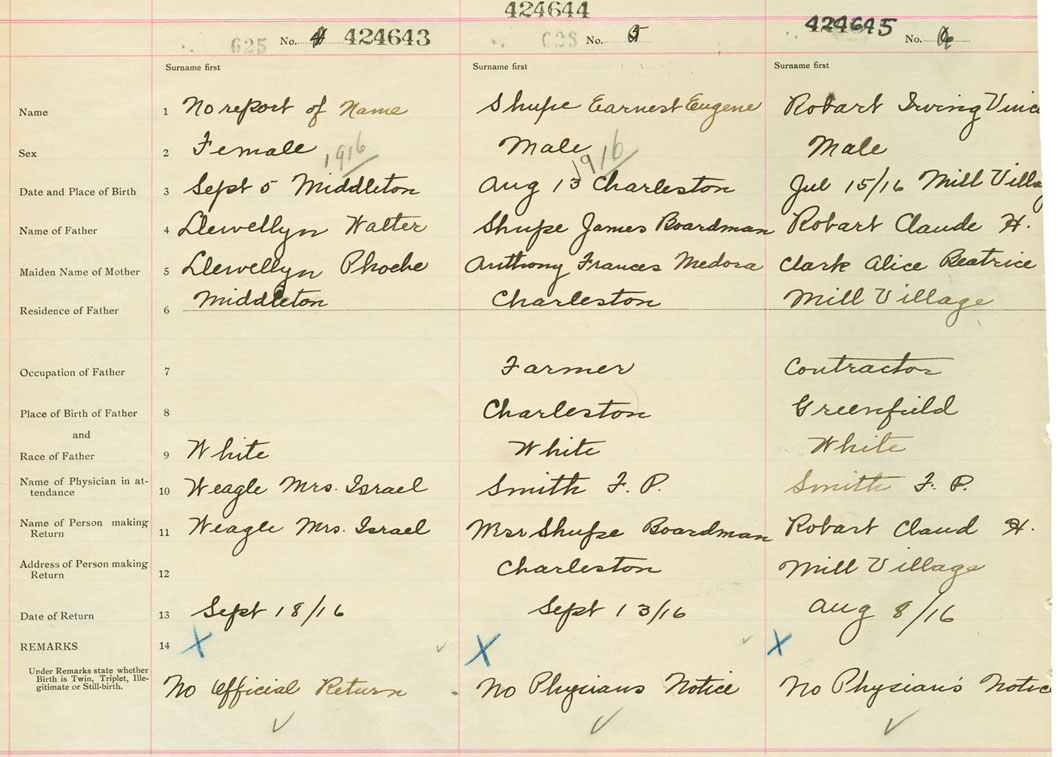 424644
625 No. 4 424643 No. 5 424645 No. 6
Surname first Surname first Surname first
Name 1 No report of Name Shupe Earnest Eugene Robart Irving Vinc
Sex 2 Female Male Male
1916 1916
Date and Place of Birth 3 Sept 5 Middleton Aug 13 Charleston Jul 15/16 Mill Villa
Name of Father 4 Llewellyn Walter Shupe James Boardman Robart Claude H.
Maiden Name of Mother 5 Llewellyn Phoebe Anthony Frances Medora Clark Alice Beatrice
Residence of Father 6 Middleton Charleston Mill Village
Occupation of Father 7 Farmer Contractor
Place of Birth of Father 8 Charleston Greenfield
and
Race of Father 9 White White White
Name of Physician in at-
tendance 10 Weagle Mrs. Israel Smith F. P. Smith F. P.
Name of Person making
Return 11 Weagle Mrs. Israel Mrs Shupe Boardman Robart Claud H.
Address of Person making
Return 12 Charleston Mill Village
Date of Return 13 Sept 18/16 Sept 13/16 Aug 8/16
REMARKS 14 X X X
Under Remarks state whether
Birth is Twin, Triplet, Ille-
gitimate or Still-birth.
No Official Return No Physians Notice No Physian's Notice